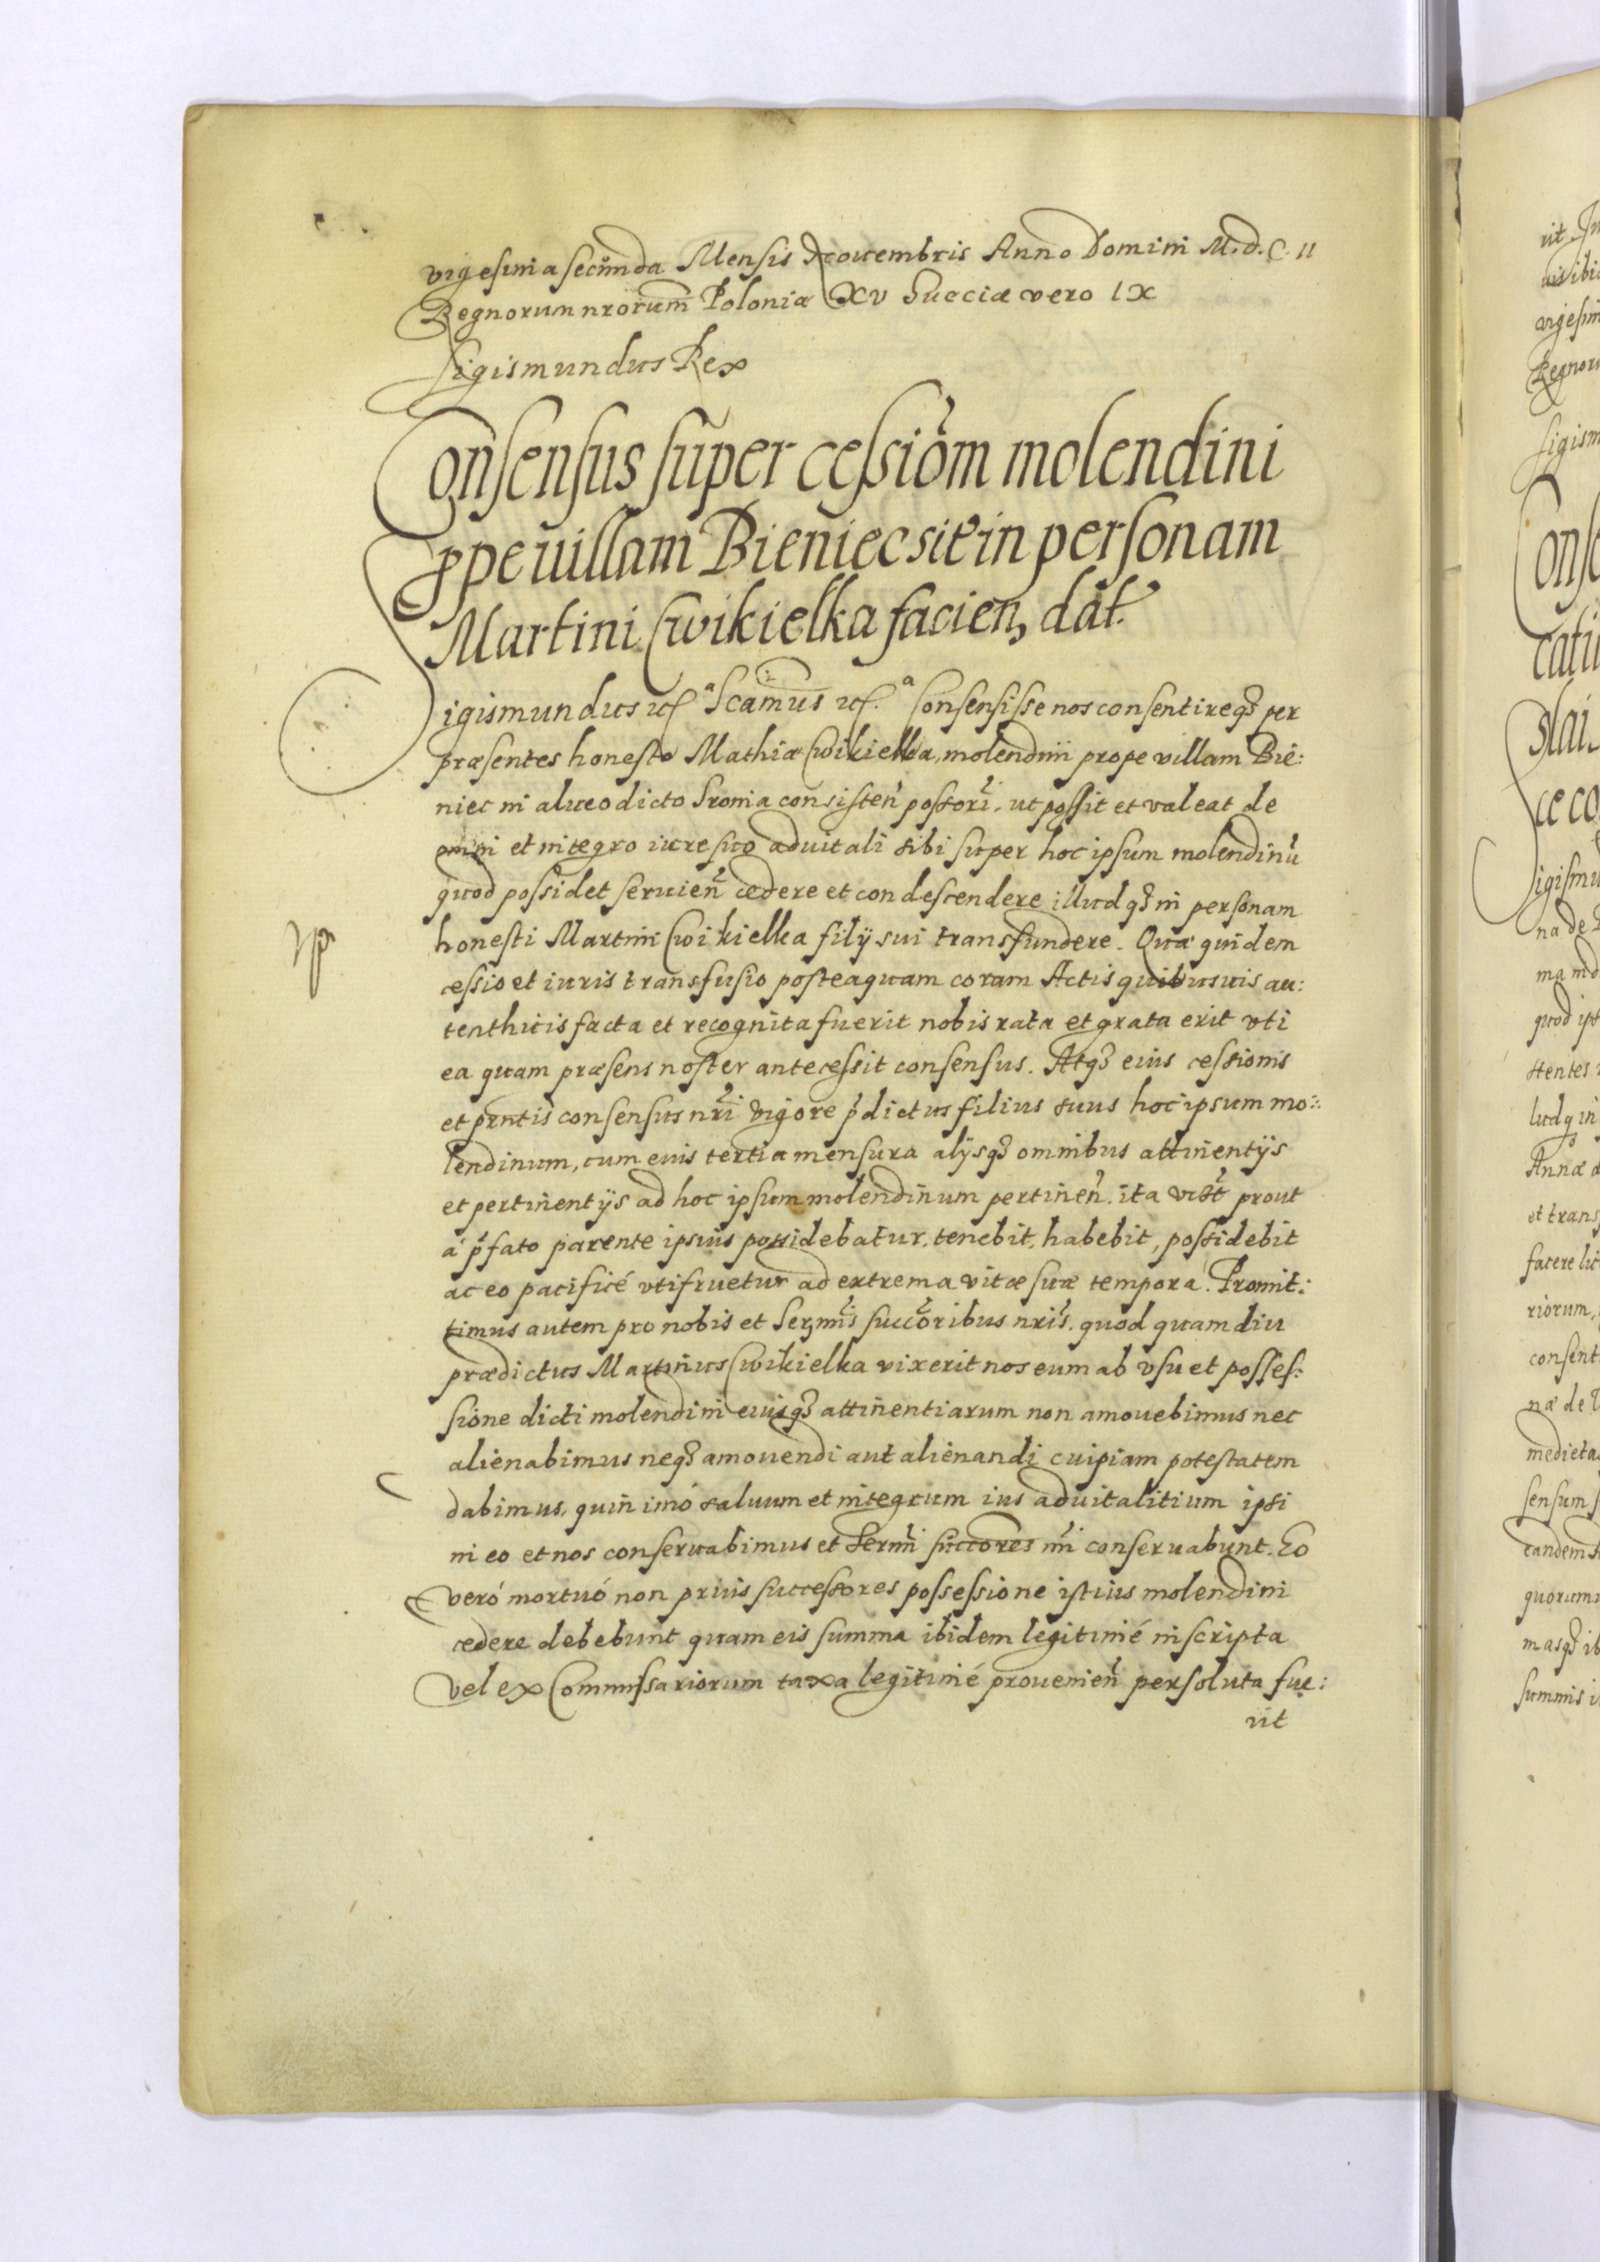 vigesima secunda Mensis Novembris Anno Domini M.d.C.II
Regnorum nrorum Poloniæ XV Sueciæ vero IX
Sigismundus Rex
Consensus super cessiom molendini
ppe uillam Bieniec sit in personam
Martini Cwikielka facien, dat.
Sigismundus etc. Scamus etc. Consensisse nos consentireq3 per
præsentes honesto Mathiæ Cwikielka, molendini prope villam Bie:
niec in alueo dicto Sronia consisten possori. ut possit et valeat de
omni et integro iure suo aduitali sibi super hoc ipsum molendinu
quod possidet seruien cedere et condescendere illudq3 in personam
honesti Martini Cwikielka filij sui transfundere. Quæ quidem
cessio et iuris transfusio posteaquam coram Actis quibusuis au:
tenthicis facta et recognita fuerit nobis rata et grata erit vti
ea quam præsens noster antecessit consensus. Atq3 eius cessionis
et pntis consensus nri vigore pdictus filius suus hoc ipsum mo:
lendinum, cum eius tertia mensura alijsq3 omnibus attinentijs
et pertinentijs ad hoc ipsum molendinum pertinen. ita ut prout
à pfato parente ipsius possidebatur, tenebit, habebit, possidebit
ac eo pacificé vtifruetur ad extrema vitæ suæ tempora. Promit:
timus autem pro nobis et Sermis succoribus nris. quod quamdiu
prædictus Martinus Cwikielka vixerit nos eum ab vsu et posses:
sione dicti molendini eiusq3 attinentiarum non amouebimus nec
alienabimus neq3 amouendi aut alienandi cuipiam potestatem
dabimus, quin imó saluum et integrum ius aduitalitium ipsi
in eo et nos conseruabimus et Sermi succores nri conseruabunt. Eo
veró mortuó non prius successores possessione istius molendini
cedere debebunt quam eis summa ibidem legitimé inscripta
vel ex Commissariorum taxa legitimé prouenien persoluta fue:
rit